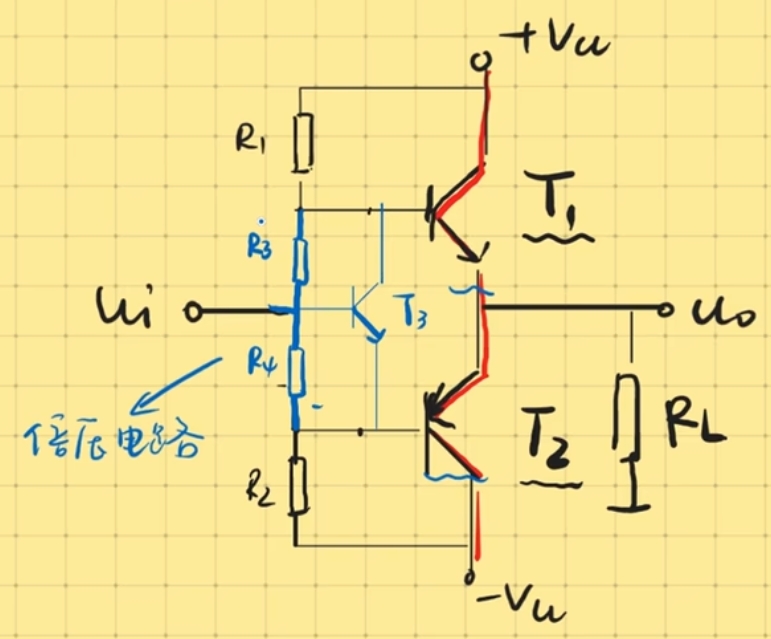 +Vcc
R1
T1
R3
Ui
T3
Uo
R4
倍压电路
T2
RL
R2
-Vcc